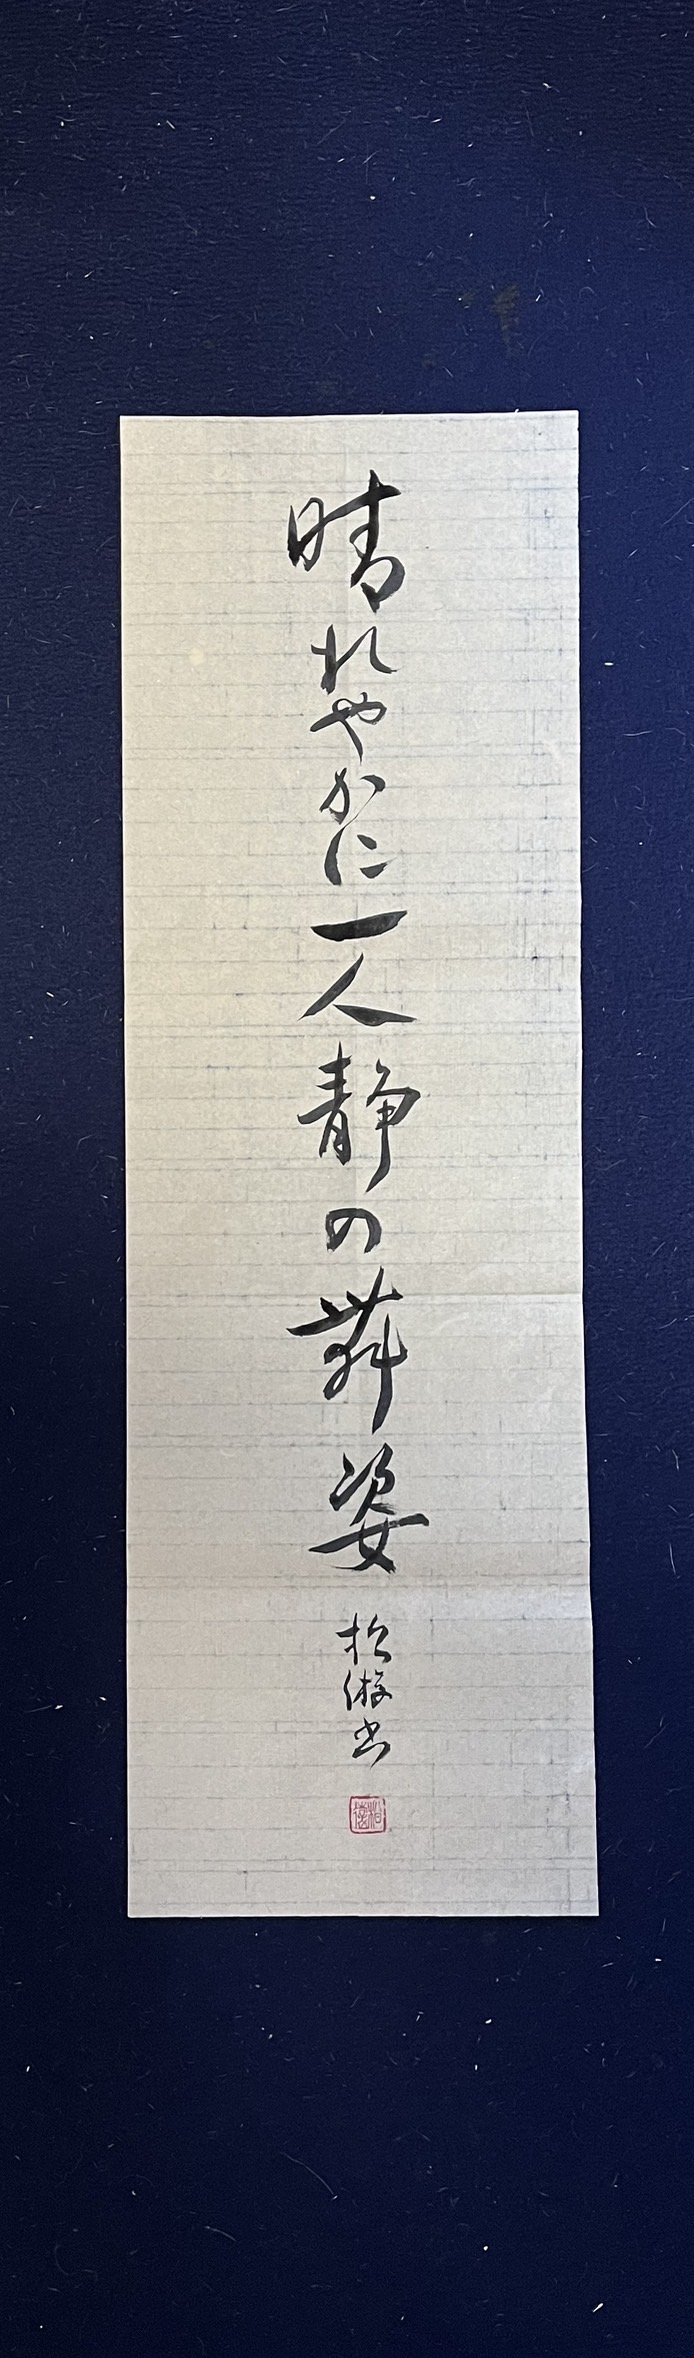 晴れやかに一人静の舞姿